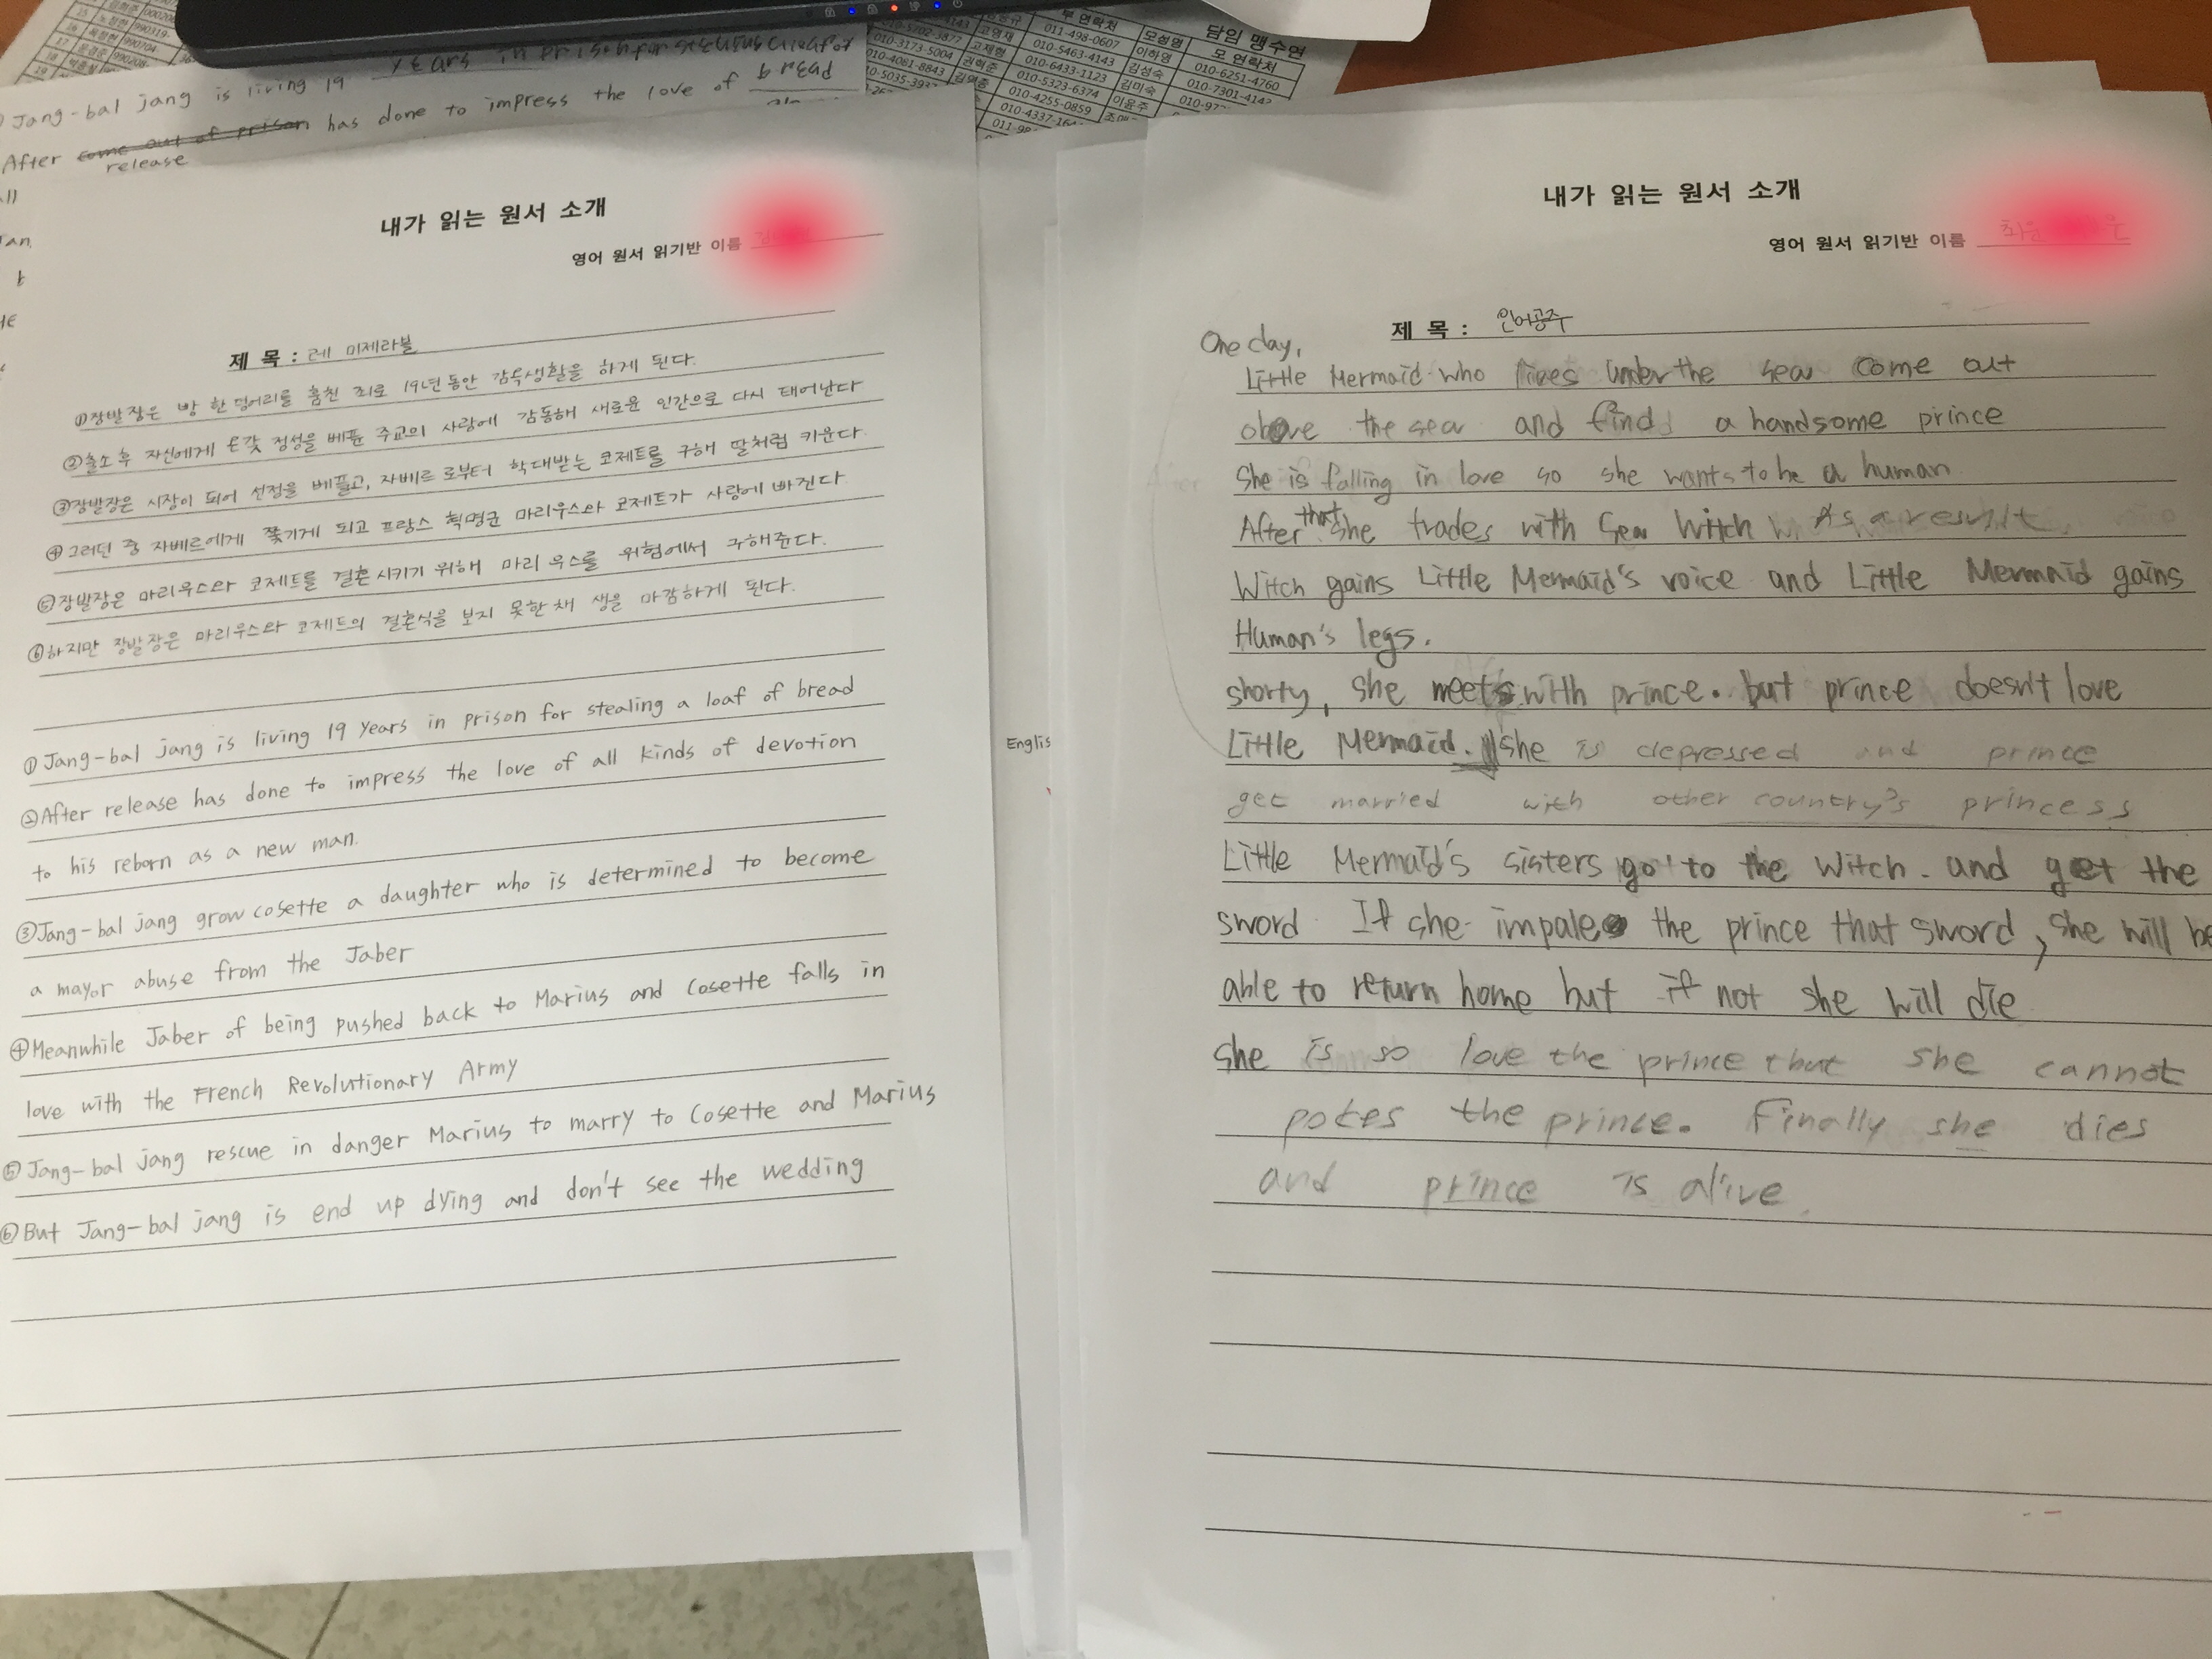 Jang-bal jang is living 19 years in prison
After come out of prison has done to impress the love of
release
담임 맹수연
부 연락처
모성명
모 연락처
011-498-0607
이하영
010-6251-4760
010-3173-5004
고제형
010-5463-4143
김성숙
010-7301-4142
010-6433-1123
김미숙
010-5323-6374
이윤주
010-4255-0859
내가 읽는 원서 소개
영어 원서 읽기반 이름
제 목 : 레 미제라블
①장발장은 빵 한 덩어리를 훔친 죄로 19년동안 감옥생활을 하게 된다.
②출소 후 자신에게 온갖 정성을 베푼 주교의 사랑에 감동해 새로운 인간으로 다시 태어난다
③장발장은 시장이 되어 선정을 베풀고, 자베르로부터 학대받는 코제트를 구해 딸처럼 키운다.
④그러던 중 자베르에게 쫓기게 되고 프랑스 혁명군 마리우스와 코제트가 사랑에 빠진다.
⑤장발장은 마리우스와 코제트를 결혼시키기 위해 마리우스를 위험에서 구해준다.
⑥하지만 장발장은 마리우스와 코제트의 결혼식을 보지 못한 채 생을 마감하게 된다.
①Jang-bal jang is living 19 years in prison for stealing a loaf of bread
②After release has done to impress the love of all kinds of devotion
to his reborn as a new man.
③Jang-bal jang grow cosette a daughter who is determined to become
a mayor abuse from the Jaber
④Meanwhile Jaber of being pushed back to Marius and Cosette falls in
love with the French Revolutionary Army
⑤Jang-bal jang rescue in danger Marius to marry to Cosette and Marius
⑥But Jang-bal jang is end up dying and don't see the wedding
Englis
내가 읽는 원서 소개
영어 원서 읽기반 이름
제 목 : 인어공주
One day,
Little Mermaid who lives under the sea come out
above the sea and find a handsome prince
She is falling in love so she wants to be a human
After that she trades with Sea Witch As a result
Witch gains Little Mermaid's voice and Little Mermaid gains
Human's legs.
shorty, she meets with prince. but prince doesn't love
Little Mermaid. she is depressed and prince
get married with other country's princess
Little Mermaid's sisters go to the witch. and get the
sword If she impale the prince that sword, she will be
able to return home but if not she will die
she is so love the prince that she cannot
pokes the prince. Finally she dies
and prince is alive.